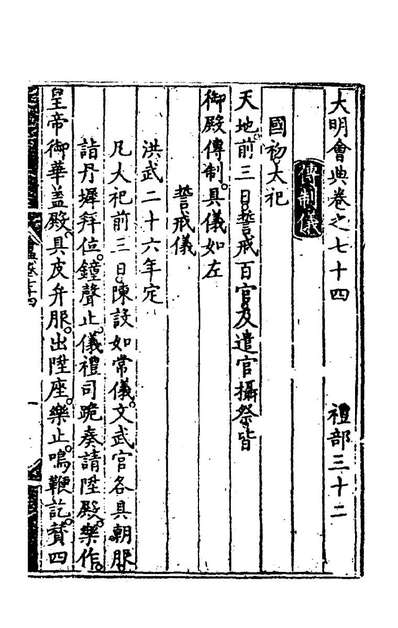 大明會典卷之七十四　禮部三十二
傳制儀
國初大祀
天地前三日誓戒百官及遣官攝祭皆
御殿傳制具儀如左
誓戒儀
洪武二十六年定
凡大祀前三日陳設如常儀文武官各具朝服
詣丹墀拜位鐘聲止儀禮司跪奏請陞殿樂作
皇帝御華蓋殿具皮弁服出陞座樂止鳴鞭訖贊四